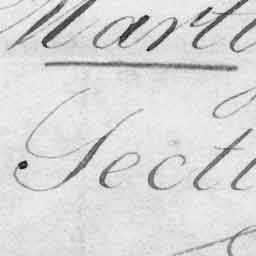 Mart
Secti